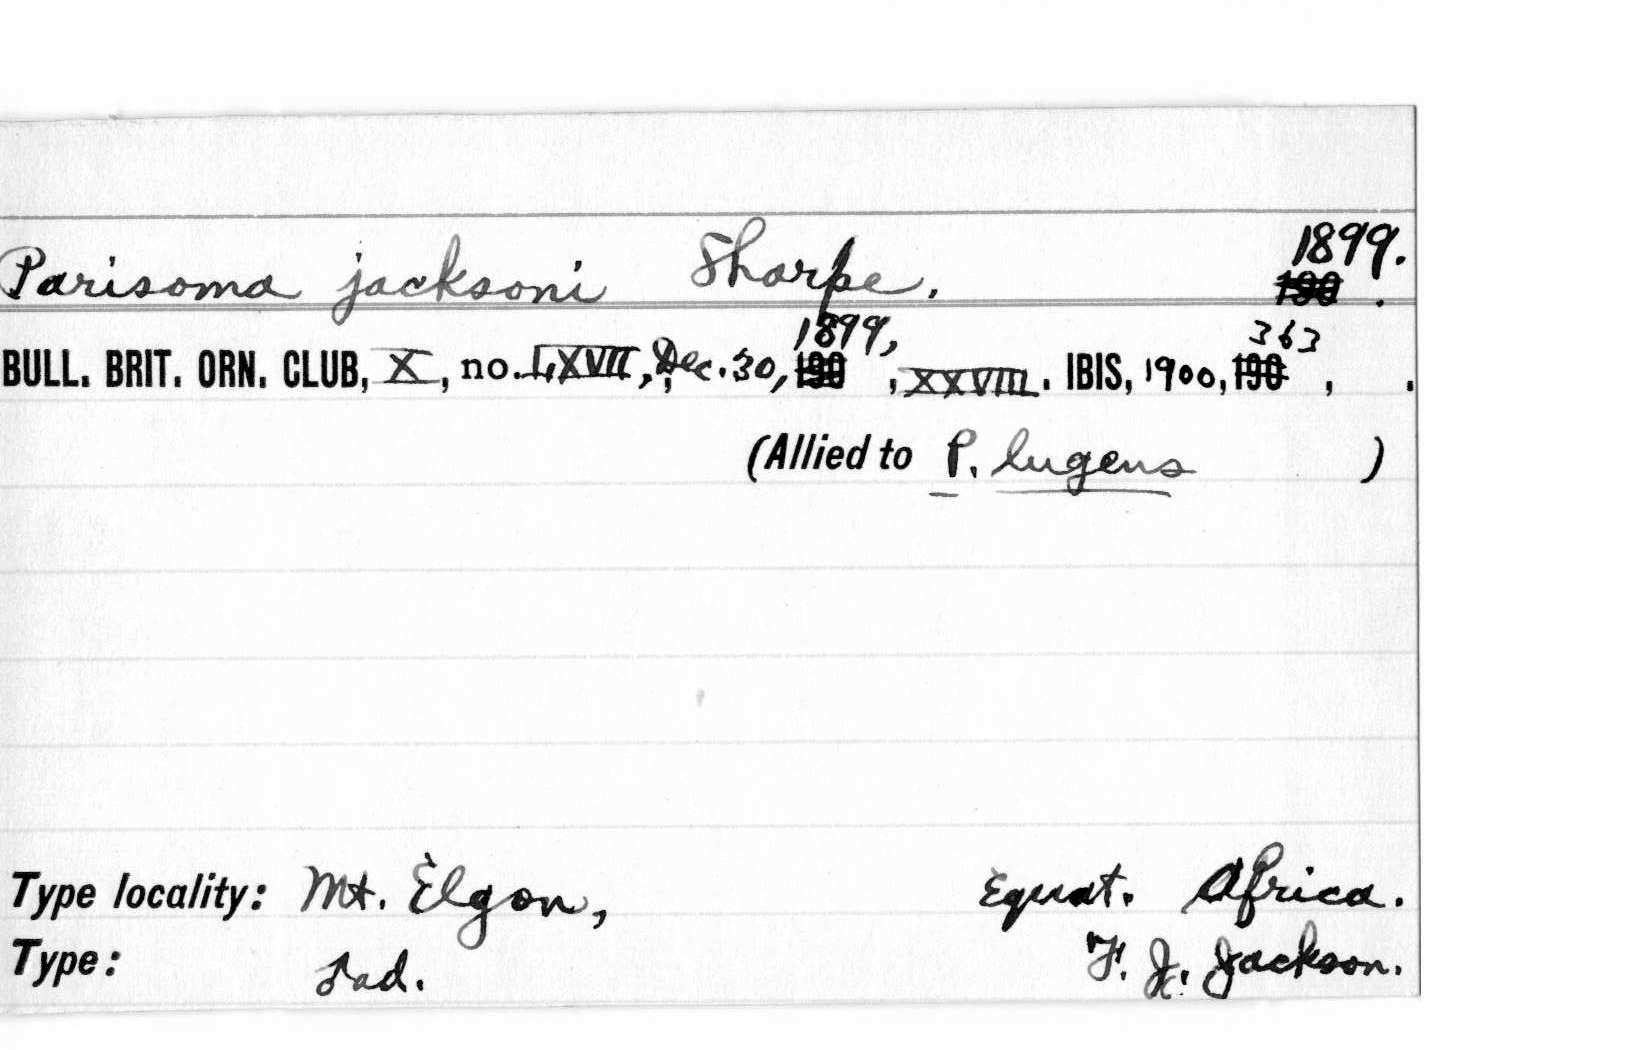 1899.
Parisoma jacksoni Sharpe. 190 .
1899, 363
BULL. BRIT. ORN. CLUB, X, no. LXVII, Dec. 30, 190 , XXVIII. IBIS, 1900, 190 , .
(Allied to P. lugens )
Type locality: Mt. Elgon, Equat. Africa.
Type: ad. F. J. Jackson.